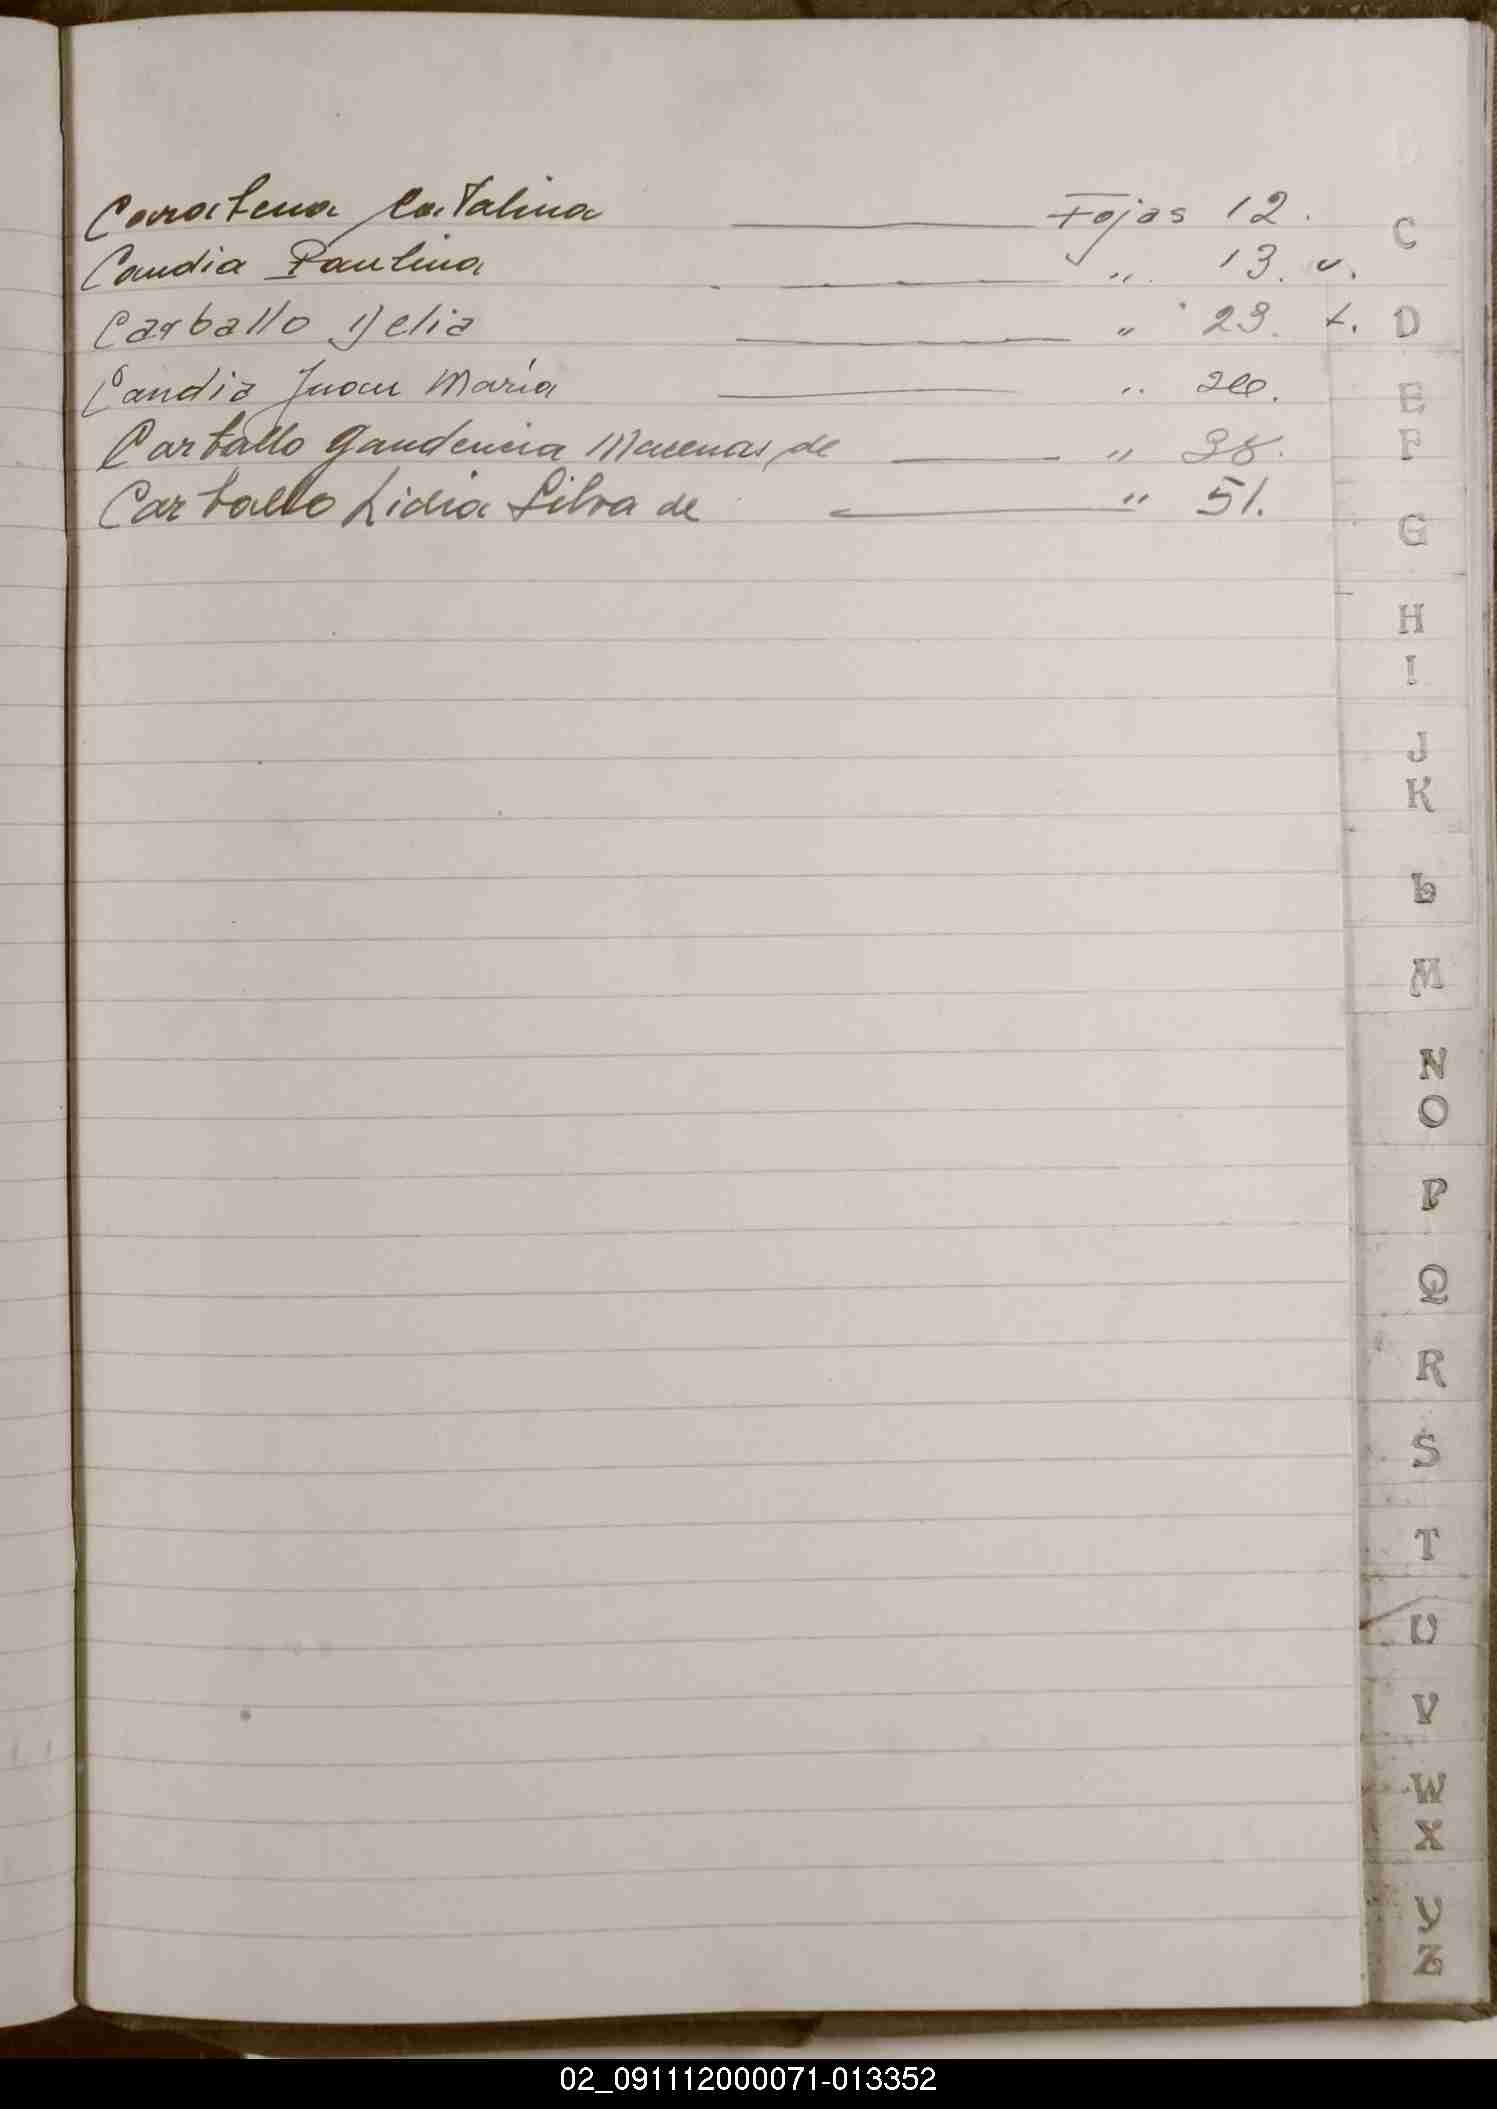 Caratena Catalina ———— Fojas 12.
Candia Paulina ———— " 13. v.
Carballo Delia ———— " 23. t.
Candia Juan María ———— "
Carballo Gaudencia Macenas de ——— " 38.
Carballo Lidia Silva de ———— " 51.
C
D
E
F
G
H
I
J
K
L
M
N
O
P
Q
R
S
T
U
V
W
X
Y
Z
02_091112000071-013352